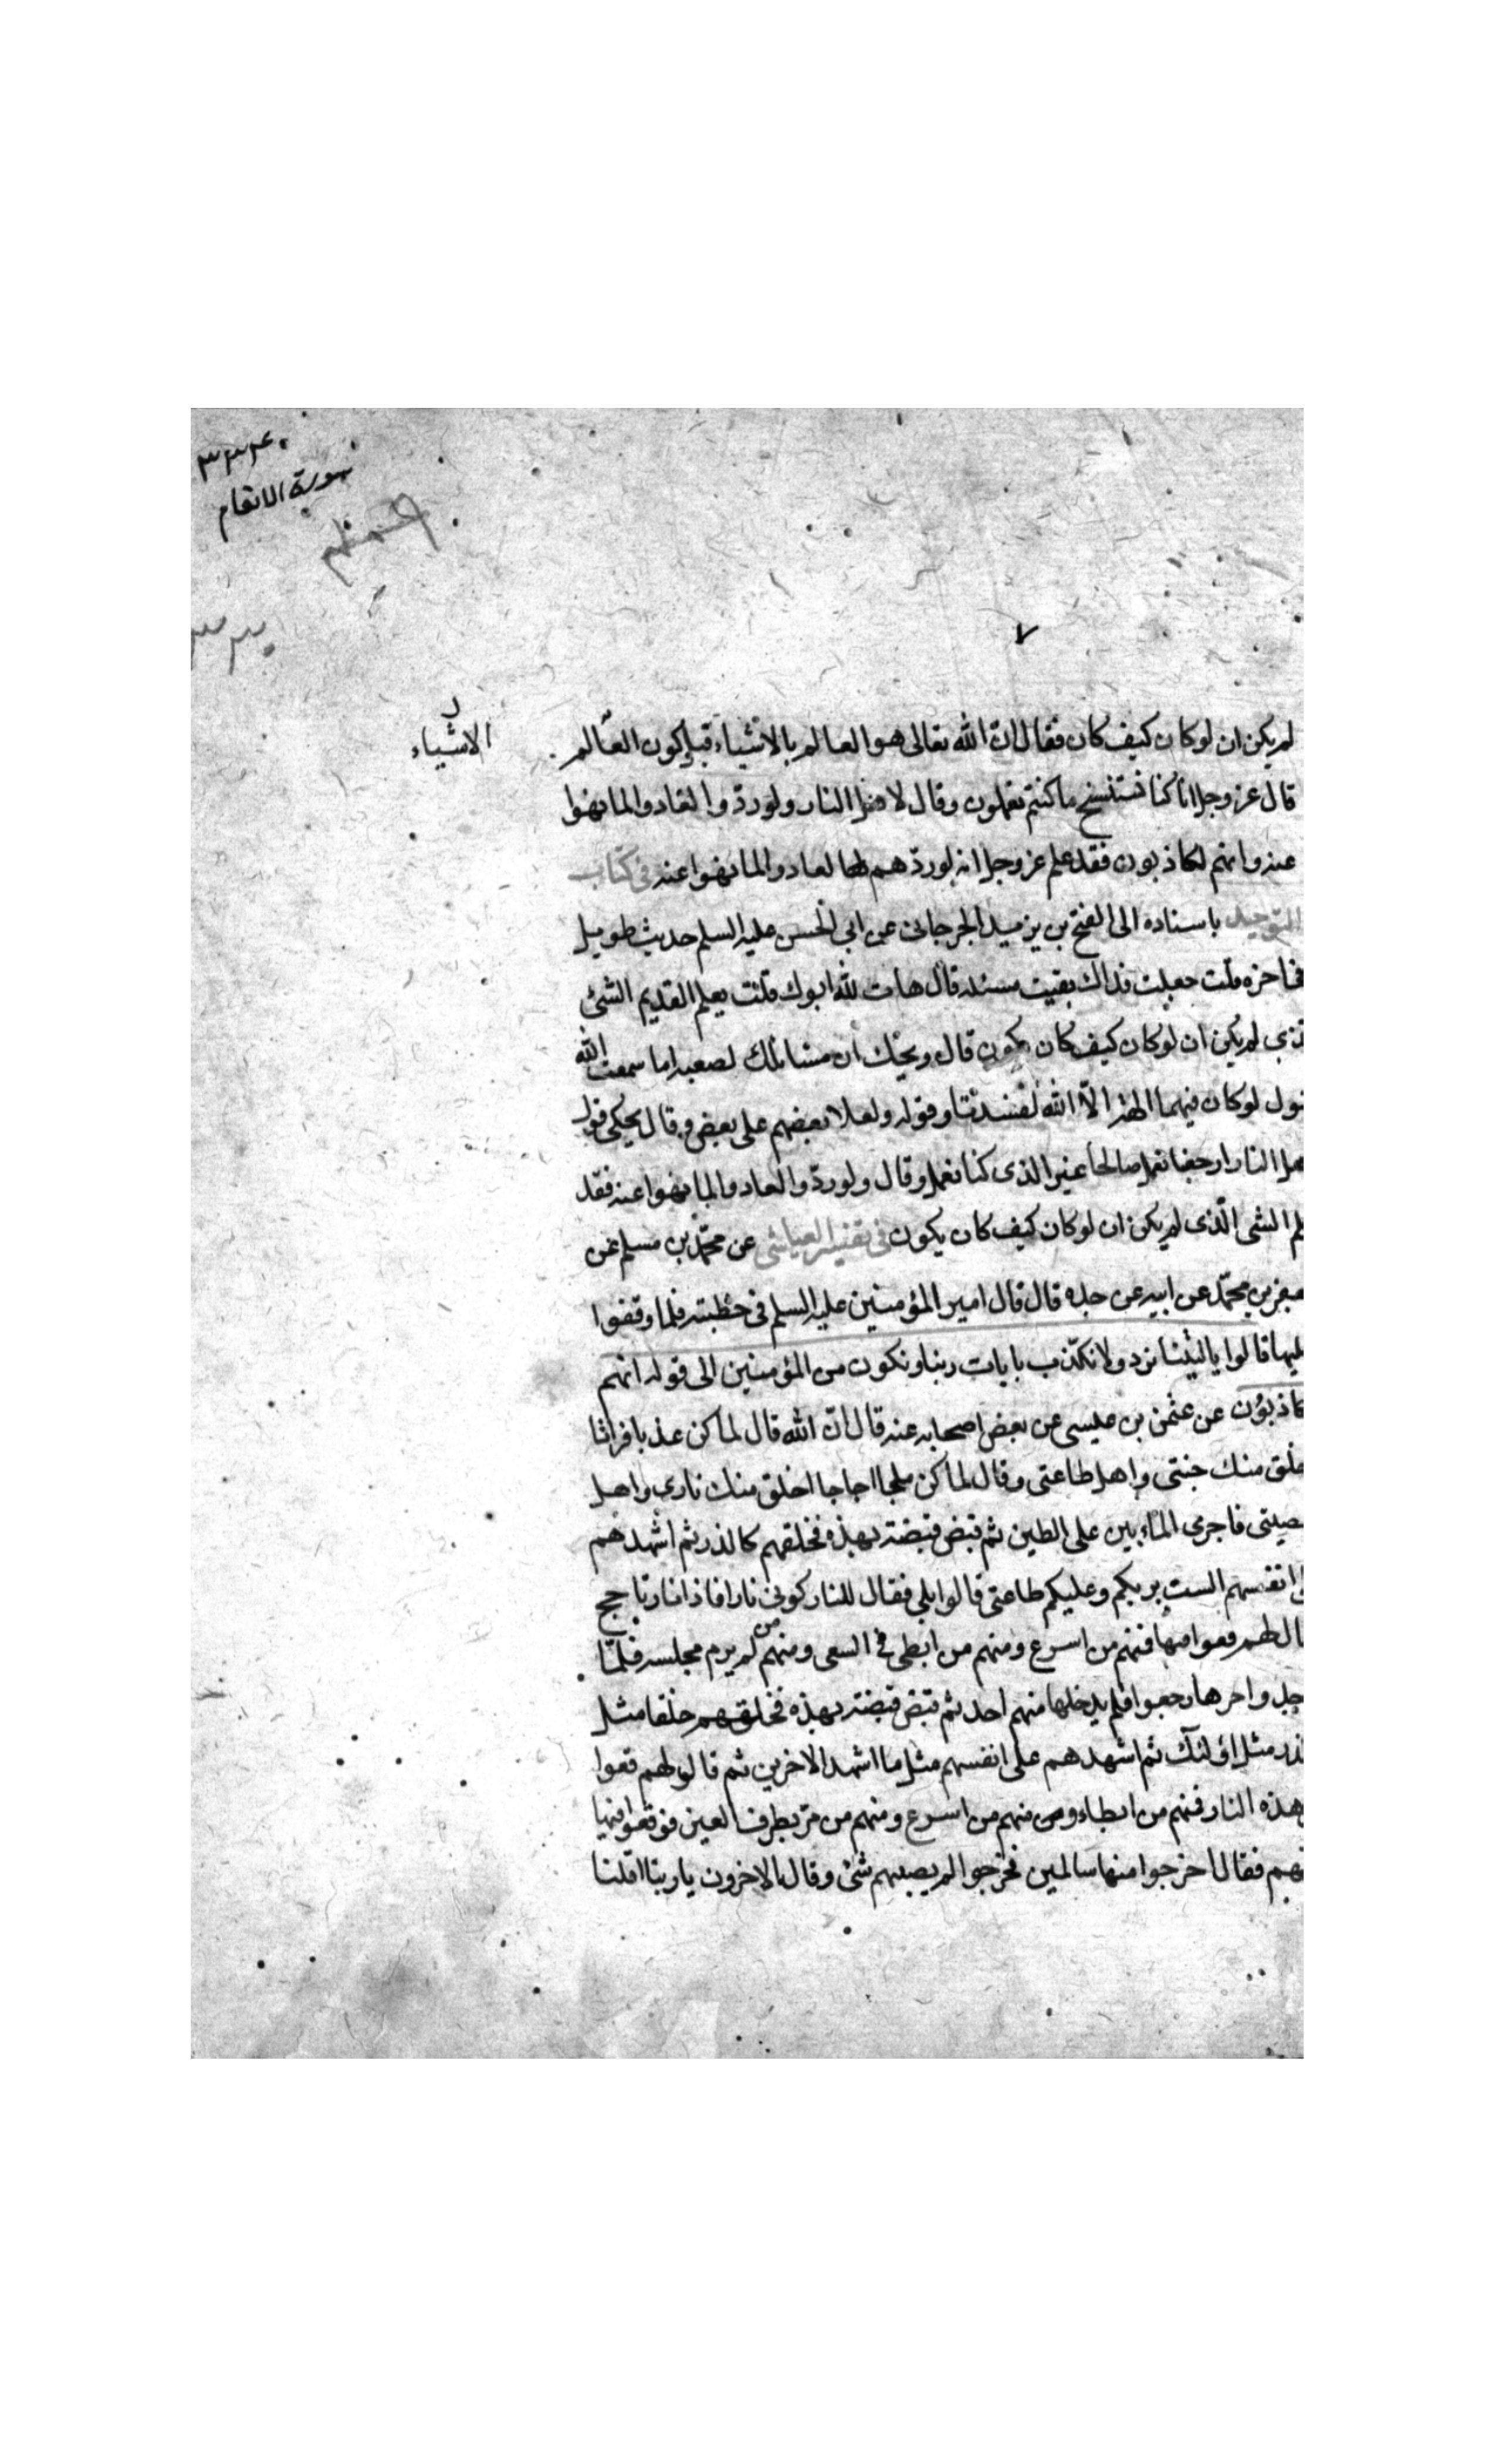 سورة الانعام
٧
لم يكن ان لو كان كيف كان فقال ان الله تعالى هو العالم بالاشياء قبل كون العالم
الاشياء
قال عز وجل انا كنا نستنسخ ما كنتم تعملون وقال لاهل النار ولو ردوا لعادوا لما نهوا
عنه وانهم لكاذبون فقد علم عز وجل انه لو ردهم لعادوا لما نهوا عنه فى كتاب
التوحيد باسناده الى الفتح بن يزيد الجرجانى عن ابى الحسن عليه السلم حديث طويل
فى اخره قلت جعلت فداك بقيت مسئلة قال هات لله ابوك قلت يعلم القديم الشئ
الذى لم يكن ان لو كان كيف كان يكون قال ويحك ان مسائلك لصعبة اما سمعت الله
يقول لو كان فيهما الهة الا الله لفسدتا وقوله ولعلا بعضهم على بعض وقال يحكى قول
هل النار ارجعنا نعمل صالحا غير الذى كنا نعمل وقال ولو ردوا لعادوا لما نهوا عنه فقد
لم الشئ الذى لم يكن ان لو كان كيف كان يكون فى تفسير العياشى عن محمد بن مسلم عن
جعفر بن محمد عن ابيه عن جده قال قال امير المؤمنين عليه السلم فى خطبته فلما وقفوا
عليها قالوا يا ليتنا نرد ولا نكذب بايات ربنا ونكون من المؤمنين الى قوله انهم
كاذبون عن عثمن بن عيسى عن بعض اصحابه عنه قال ان الله قال لما كن عذبا فراتا
خلق منك جنتى واهل طاعتى وقال لما كن ملحا اجاجا اخلق منك نارى واهل
صيتى فاجرى المائين على الطين ثم قبض قبضة بهذه فخلقهم كالذر ثم اشهدهم
انفسهم الست بربكم وعليكم طاعتى قالوا بلى فقال للنار كونى نارا فاذا نار تاجج
ال لهم قعوا فيها فمنهم من اسرع ومنهم من ابطى فى السعى ومنهم من لم يرم مجلسه فلما
جدوا حرها رجعوا فلم يدخلها منهم احد ثم قبض قبضة بهذه فخلقهم خلقا مثل
لذر مثل اولئك ثم اشهدهم على انفسهم مثل ما اشهد الاخرين ثم قال لهم قعوا
هذه النار فمنهم من ابطاء ومنهم من اسرع ومنهم من مر بطرف العين فوقعوا فيها
هم فقال اخرجوا منها سالمين فخرجوا لم يصبهم شئ وقال الاخرون يا ربنا اقلنا